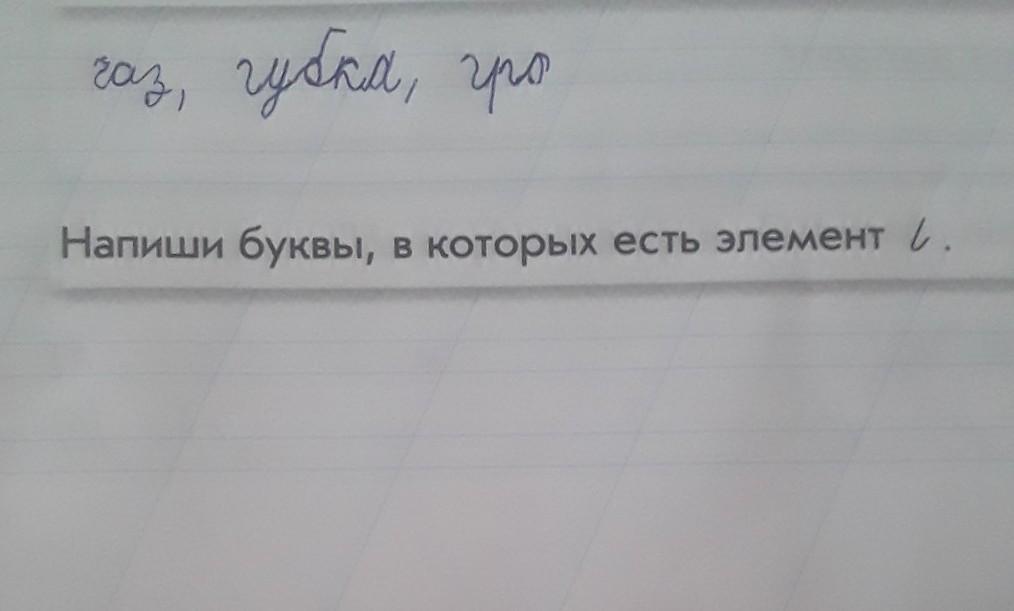 газ, губка, гро
Напиши буквы, в которых есть элемент